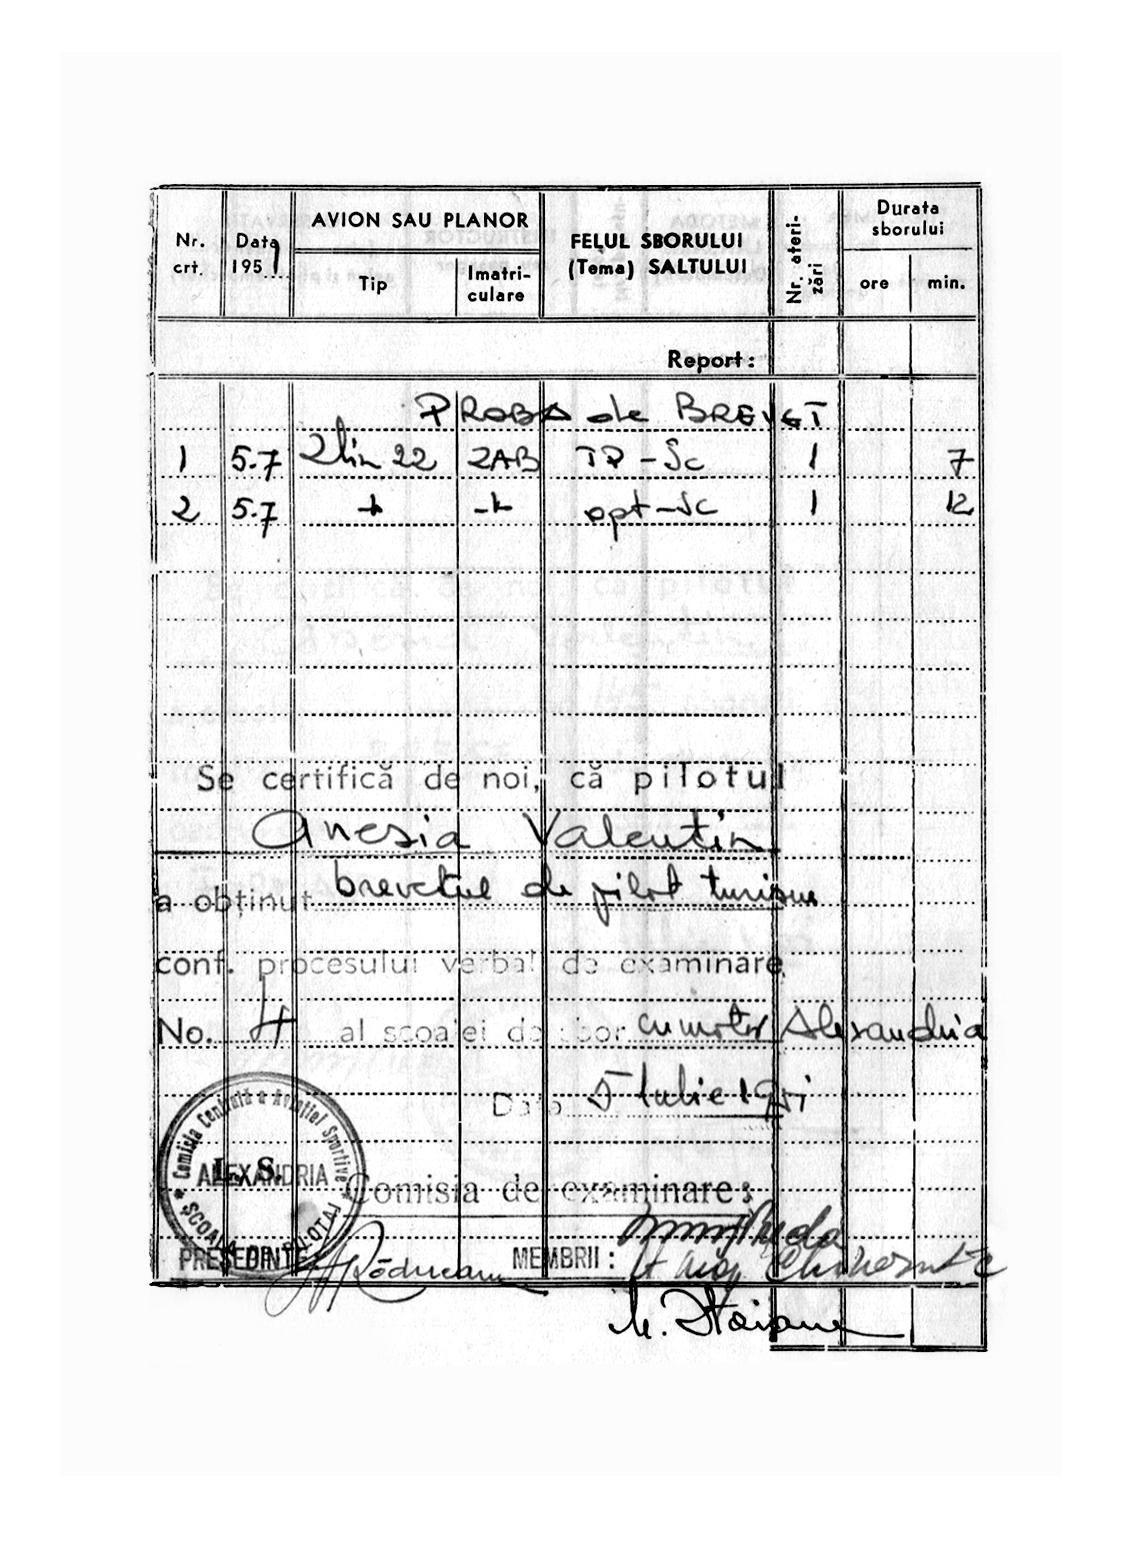 Nr. crt. Data 1951 AVION SAU PLANOR FELUL SBORULUI (Tema) SALTULUI Nr. ateri-zări Durata sborului
Tip Imatri-culare ore min.
Report:
PROBA de BREVET
1 5-7 Zlin 22 ZAB TP-Sc 1 7
2 5-7 -"- -"- opt-Sc 1 12
Se certifică de noi, că pilotul
Anesia Valentin
a obținut brevetul de pilot turism
conf. procesului verbal de examinare
No. 4 al scoalei de sbor cu motor Alexandria
Data 5 Iulie 1951
Comisia Centrală a Aviației Sportive
ALEXANDRIA
L. S.
SCOALA DE PILOTAJ
Comisia de examinare:
PREȘEDINTE: MEMBRII:
M. Stoian